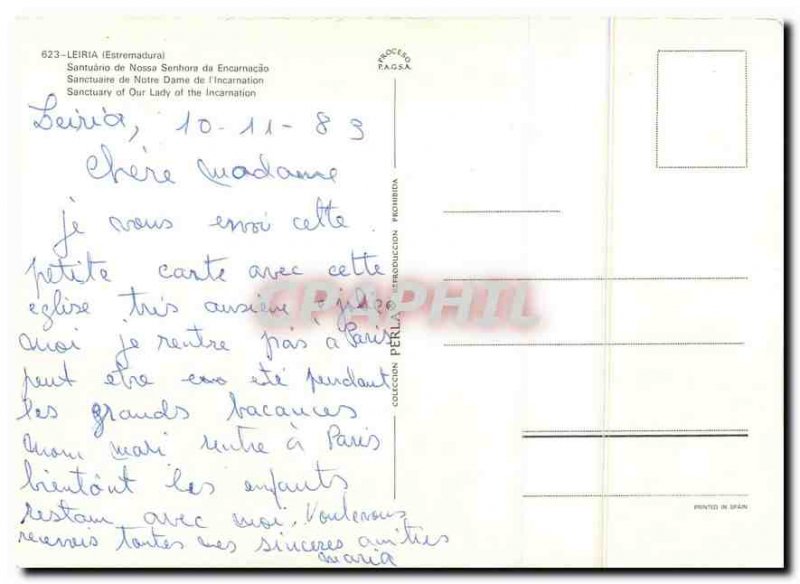 623-LEIRIA (Estremadura)
Santuário de Nossa Senhora da Encarnação
Sanctuaire de Notre Dame de l'Incarnation
Sanctuary of Our Lady of the Incarnation
PROCERO
P.A.G.S.A.
Leiria, 10-11-83
Chère Madame
je vous envoi cette
petite carte avec cette
eglise tris ausiene
moi je rentre pas à Paris
peut etre été pendant
les grands bacances
mom mari rentre à Paris
bientônt les enfants
restam avec moi. Voulevous
recevois toutes mes sinceres amities
Maria
COLECCION PERLA® REPRODUCCION PROHIBIDA
CPAPHIL
PRINTED IN SPAIN